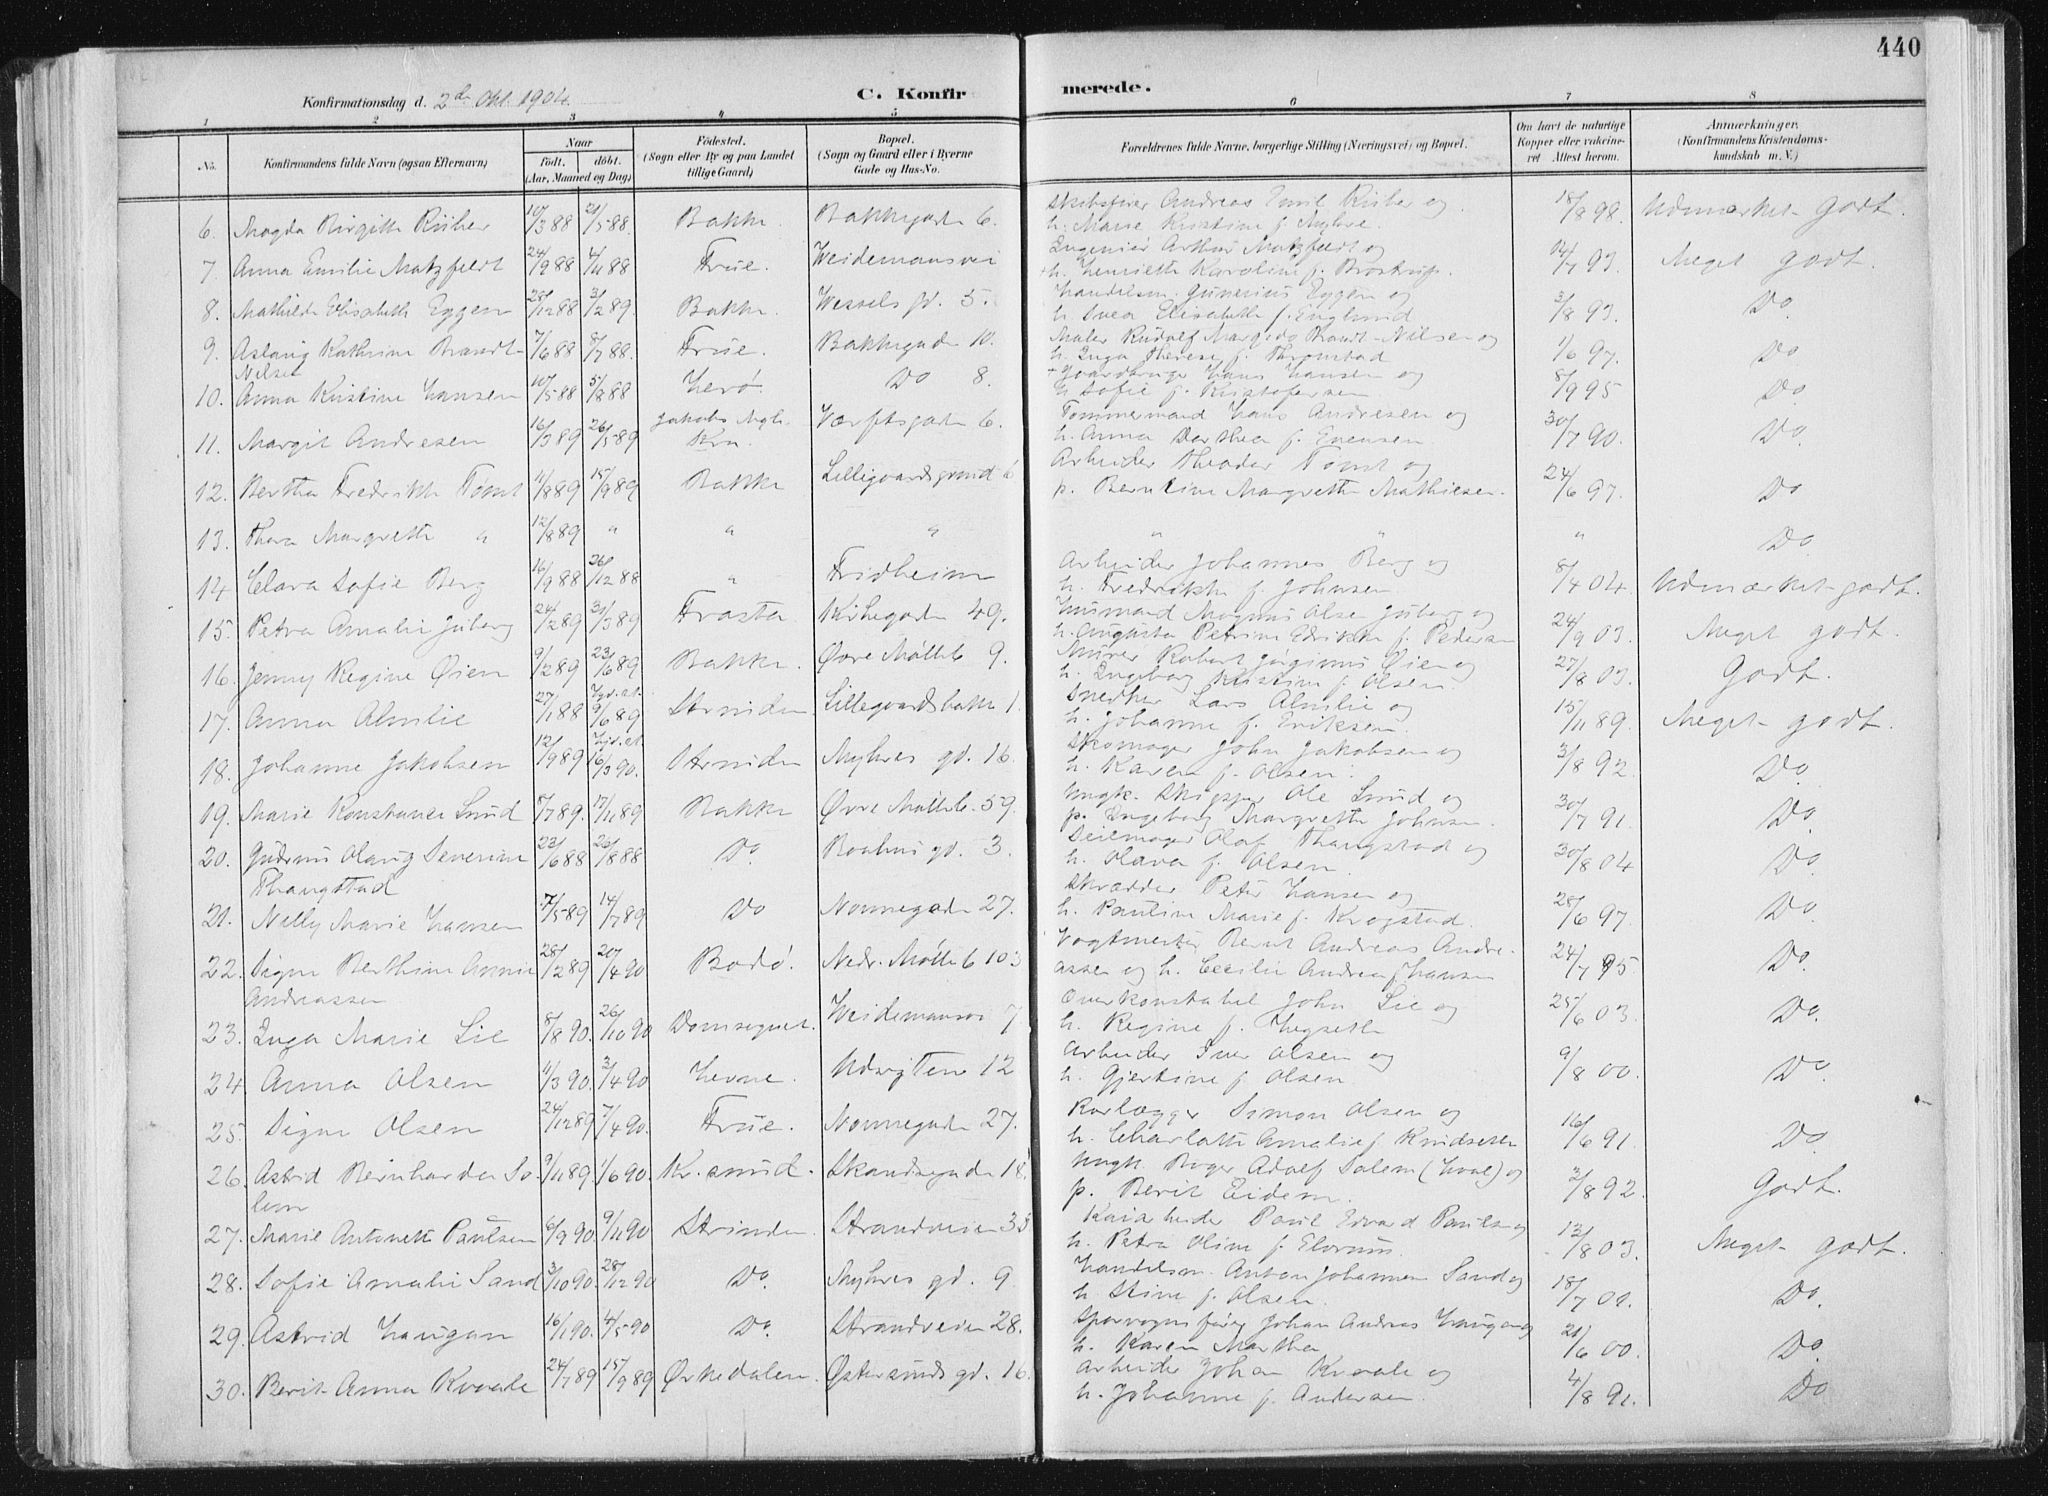 440
Konfirmationsdag d. 2de Okt. 1904.
C. Konfirmerede.
1 2 3 4 5 6 7 8
No. Konfirmandens fulde Navn (ogsaa Efternavn) Naar født. døbt. (Aar, Maaned og Dag) Fødested. (Sogn eller By og paa Landet tillige Gaard) Bopæl. (Sogn og Gaard eller i Byerne Gade og Hus-No. Forældrenes fulde Navne, borgerlige Stilling (Næringsvei) og Bopæl. Om havt de naturlige Kopper eller vakcineret Attest herom. Anmærkninger. (Konfirmandens Kristendomskundskab m. V.)
6. Magda Birgitte Riiber 10/3 88 21/5 88. Bakke. Bakkegaden 6. Skibsfører Andreas Emil Riiber og h. Marie Kristine f. Myhre. 18/8 98. Udmærket godt.
7. Anna Emilie Matzfeldt 24/9 88 4/11 88 Frue. Weidemansvei Ingeniør Arthur Matzfeldt og h. Henriette Karoline f. Brostrup. 14/7 93. Meget godt.
8. Mathilde Elisabeth Eggen 28/12 88 3/2 89. Bakke. Wessels gd. 5. Handelsm. Gunerius Eggen og h. Svea Elisabeth f. Englund 3/8 93. Do
9. Aslaug Kathrine Brandt-Nilsen 7/6 88 8/7 88. Frue. Bakkegaden 10. Maler Rudolf Brandt-Nilsen og h. Inga Therese f. Thronstad 1/6 97. Do
10. Anna Kristine Hansen 10/5 88 5/8 88 Herø. Do 8. Gaardbruger Hans Hansen og h. Sofie f. Kristofersen 8/9 95 Do.
11. Margit Andresen 16/3 89 26/5 89 Jakobs Mgh. Kra. Værftsgaden 6. Tømmermand Hans Andresen og h. Anna Dorthea f. Evensen 30/7 90. Do.
12. Bertha Fredrikke Tømt 11/8 89 15/9 89 Bakke Lillegaardsgrund 6 Arbeider Theodor Tømt og p. Berntine Margrethe Mathiesen. 24/6 97. Do
13. Thora Margrethe " 12/8 89 " " " " " " Do.
14 Clara Sofie Berg 16/9 88 26/12 88 " Fridheim Arbeider Johannes Berg og h. Fredrikke f. Johnsen. 8/4 04. Udmærket godt.
15. Petra Amalie Juberg 24/2 89 31/3 89 Frosta Kirkegaden 49. Husmand Magnus Olsen Juberg og h. Augusta Petrine f. Pedersen 24/9 03. Meget godt.
16. Jenny Regine Øien 9/2 89 23/6 89 Bakke. Øvre Møllebg. 9. Murer Robert Øien og h. Ingeborg Kristine f. Olsen. 27/8 03. Godt.
17. Anna Almlie 27/1 88 9/6 89 Strinden Lillegaardsbakke 1. Snedker Lars Almlie og h. Johanne f. Eriksen. 15/11 89. Meget godt.
18. Johanne Jakobsen 12/9 89 16/3 90. Strinden Myhres gd. 16. Skomager John Jakobsen og h. Karen f. Olsen. 3/8 92. Do.
19. Marie Konstance Smud 7/7 89. 17/11 89 Bakke Øvre Møllebg. 59 Ungk. Skipper Ole Smud og p. Ingeborg Margrethe Johnsen. 30/7 91. Do.
20. Gudrun Olaug Severine Thaugstad 23/6 88 26/8 88 Do. Baahus gd. 3. Seilmager Olaf Thaugstad og h. Olava f. Olsen. 30/8 04 Do.
21. Nelly Marie Hansen 7/5 89 14/7 89 Do Nonnegaden 27. Skrædder Peter Hansen og h. Pauline Marie f. Krogstad. 28/6 97. Do.
22. Signe Berthine Annie Andreassen 28/2 89 20/4 90 Bodø. Nedr. Møllebg 103 Vogtmester Bernt Andreas Andreassen og h. Cecilie Andrea f. Hansen 24/7 95 Do.
23. Inga Marie Lie 8/8 90. 26/10 90 Domsognet. Weidemansvei 7 Overkonstabel John Lie og h. Regine f. Hegseth 25/6 03. Do.
24. Anna Olsen 11/3 90. 3/4 90 Hevne. Udsigten 12 Arbeider Iver Olsen og h. Gjertine f. Olsen 9/8 00. Do.
25. Signe Olsen 24/12 89 7/4 90. Frue. Nonnegaden 27. Rørlægger Simon Olsen og h. Charlotte Amalie f. Knudsen 16/6 91. Do.
26. Astrid Bernharda Solem 9/11 89. 1/6 90. Kr. sund. Skansegaden 18. Ungk. Roger Adolf Solem (Hval) og p. Berit Eidem. 2/8 92. Godt.
27. Marie Antonette Paulsen 6/9 90. 9/11 90 Strinden Strandveien 35 Kaiarbeider Paul Edvard Paulsen og h. Petra Oline f. Elvrum. 13/8 03. Meget godt.
28. Sofie Amalie Sand 3/10 90. 28/12 90 Do. Myhres gd. 9. Handelsm. Anton Johannes Sand og h. Stine f. Olsen. 18/7 01. Do.
29. Astrid Haugan 16/1 90. 4/5 90 Do. Strandveien 28. Sporvognsfører Johan Andreas Haugan og h. Karen Marthea 21/6 00. Do.
30. Berit Anna Kvaale 24/7 89 15/9 89 Ørkedalen. Østersunds gd. 16. Arbeider Johan Kvaale og h. Johanne f. Andersen. 4/8 91. Do